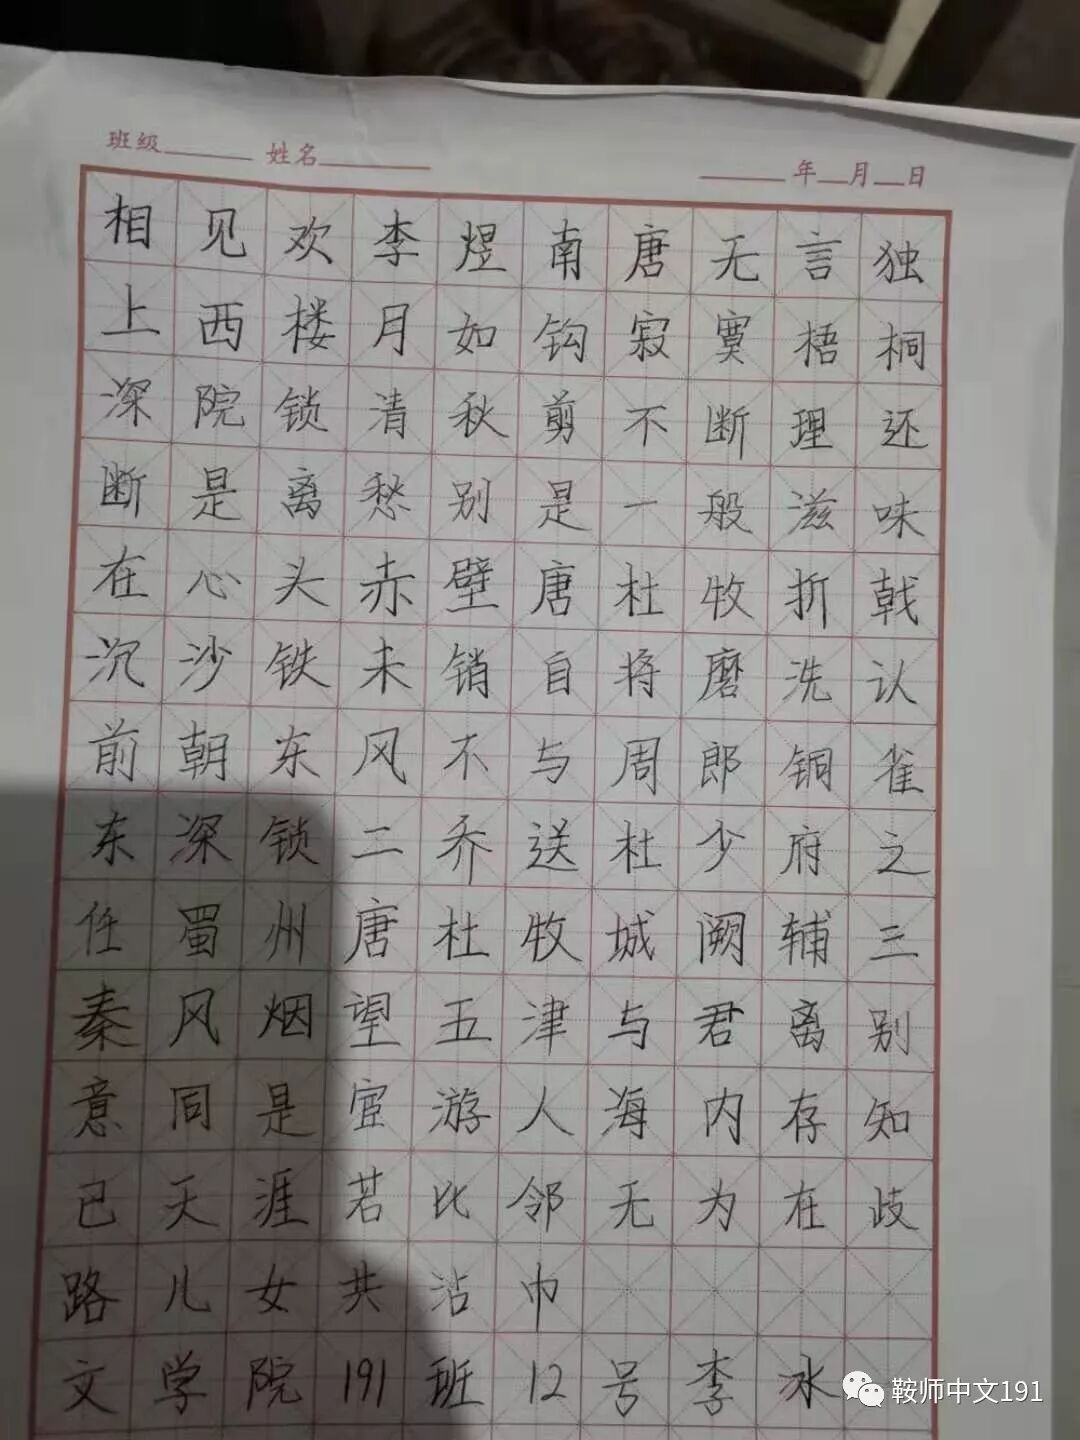 班级 姓名 年 月 日
相见欢李煜南唐无言独
上西楼月如钩寂寞梧桐
深院锁清秋剪不断理还
断是离愁别是一般滋味
在心头赤壁唐杜牧折戟
沉沙铁未销自将磨洗认
前朝东风不与周郎铜雀
东深锁二乔送杜少府之
任蜀州唐杜牧城阙辅三
秦风烟望五津与君离别
意同是宦游人海内存知
已天涯若比邻无为在歧
路儿女共沾巾
文学院191班12号李冰
鞍师中文191